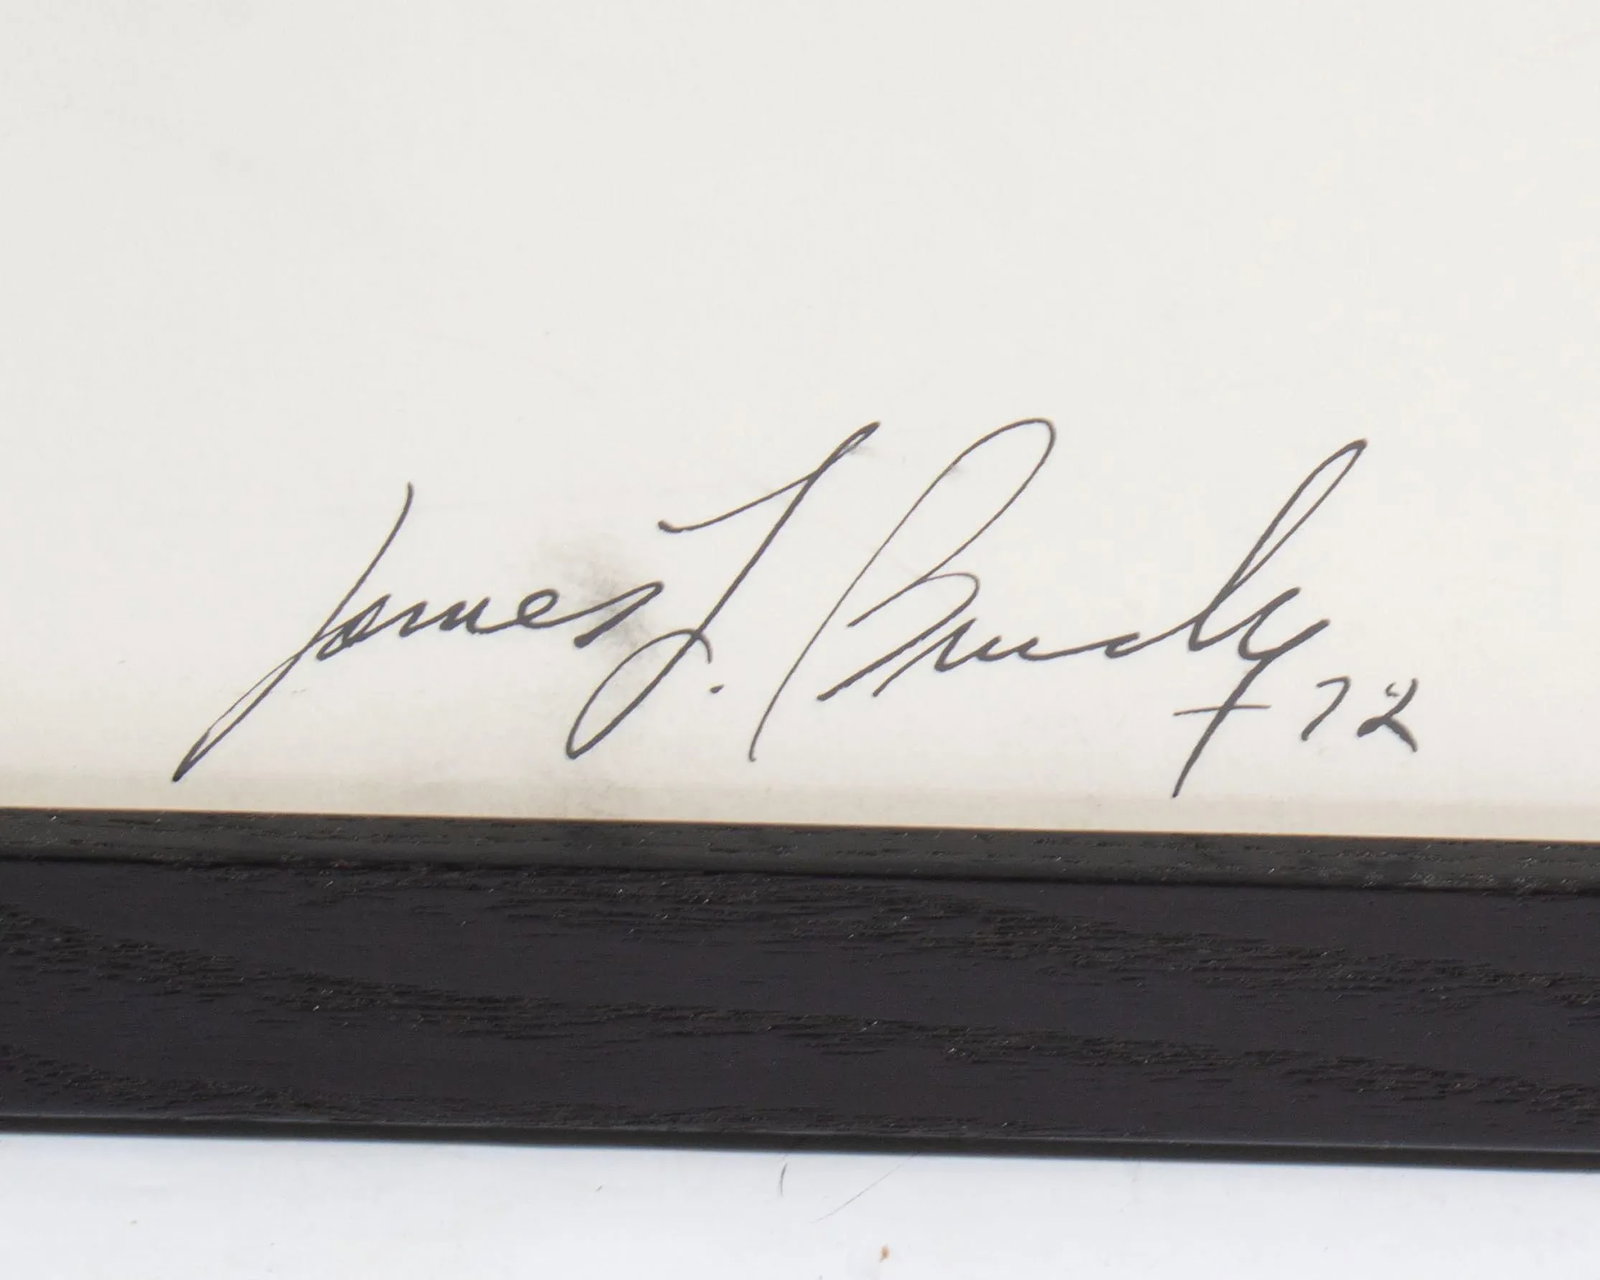 James J. Brody 72